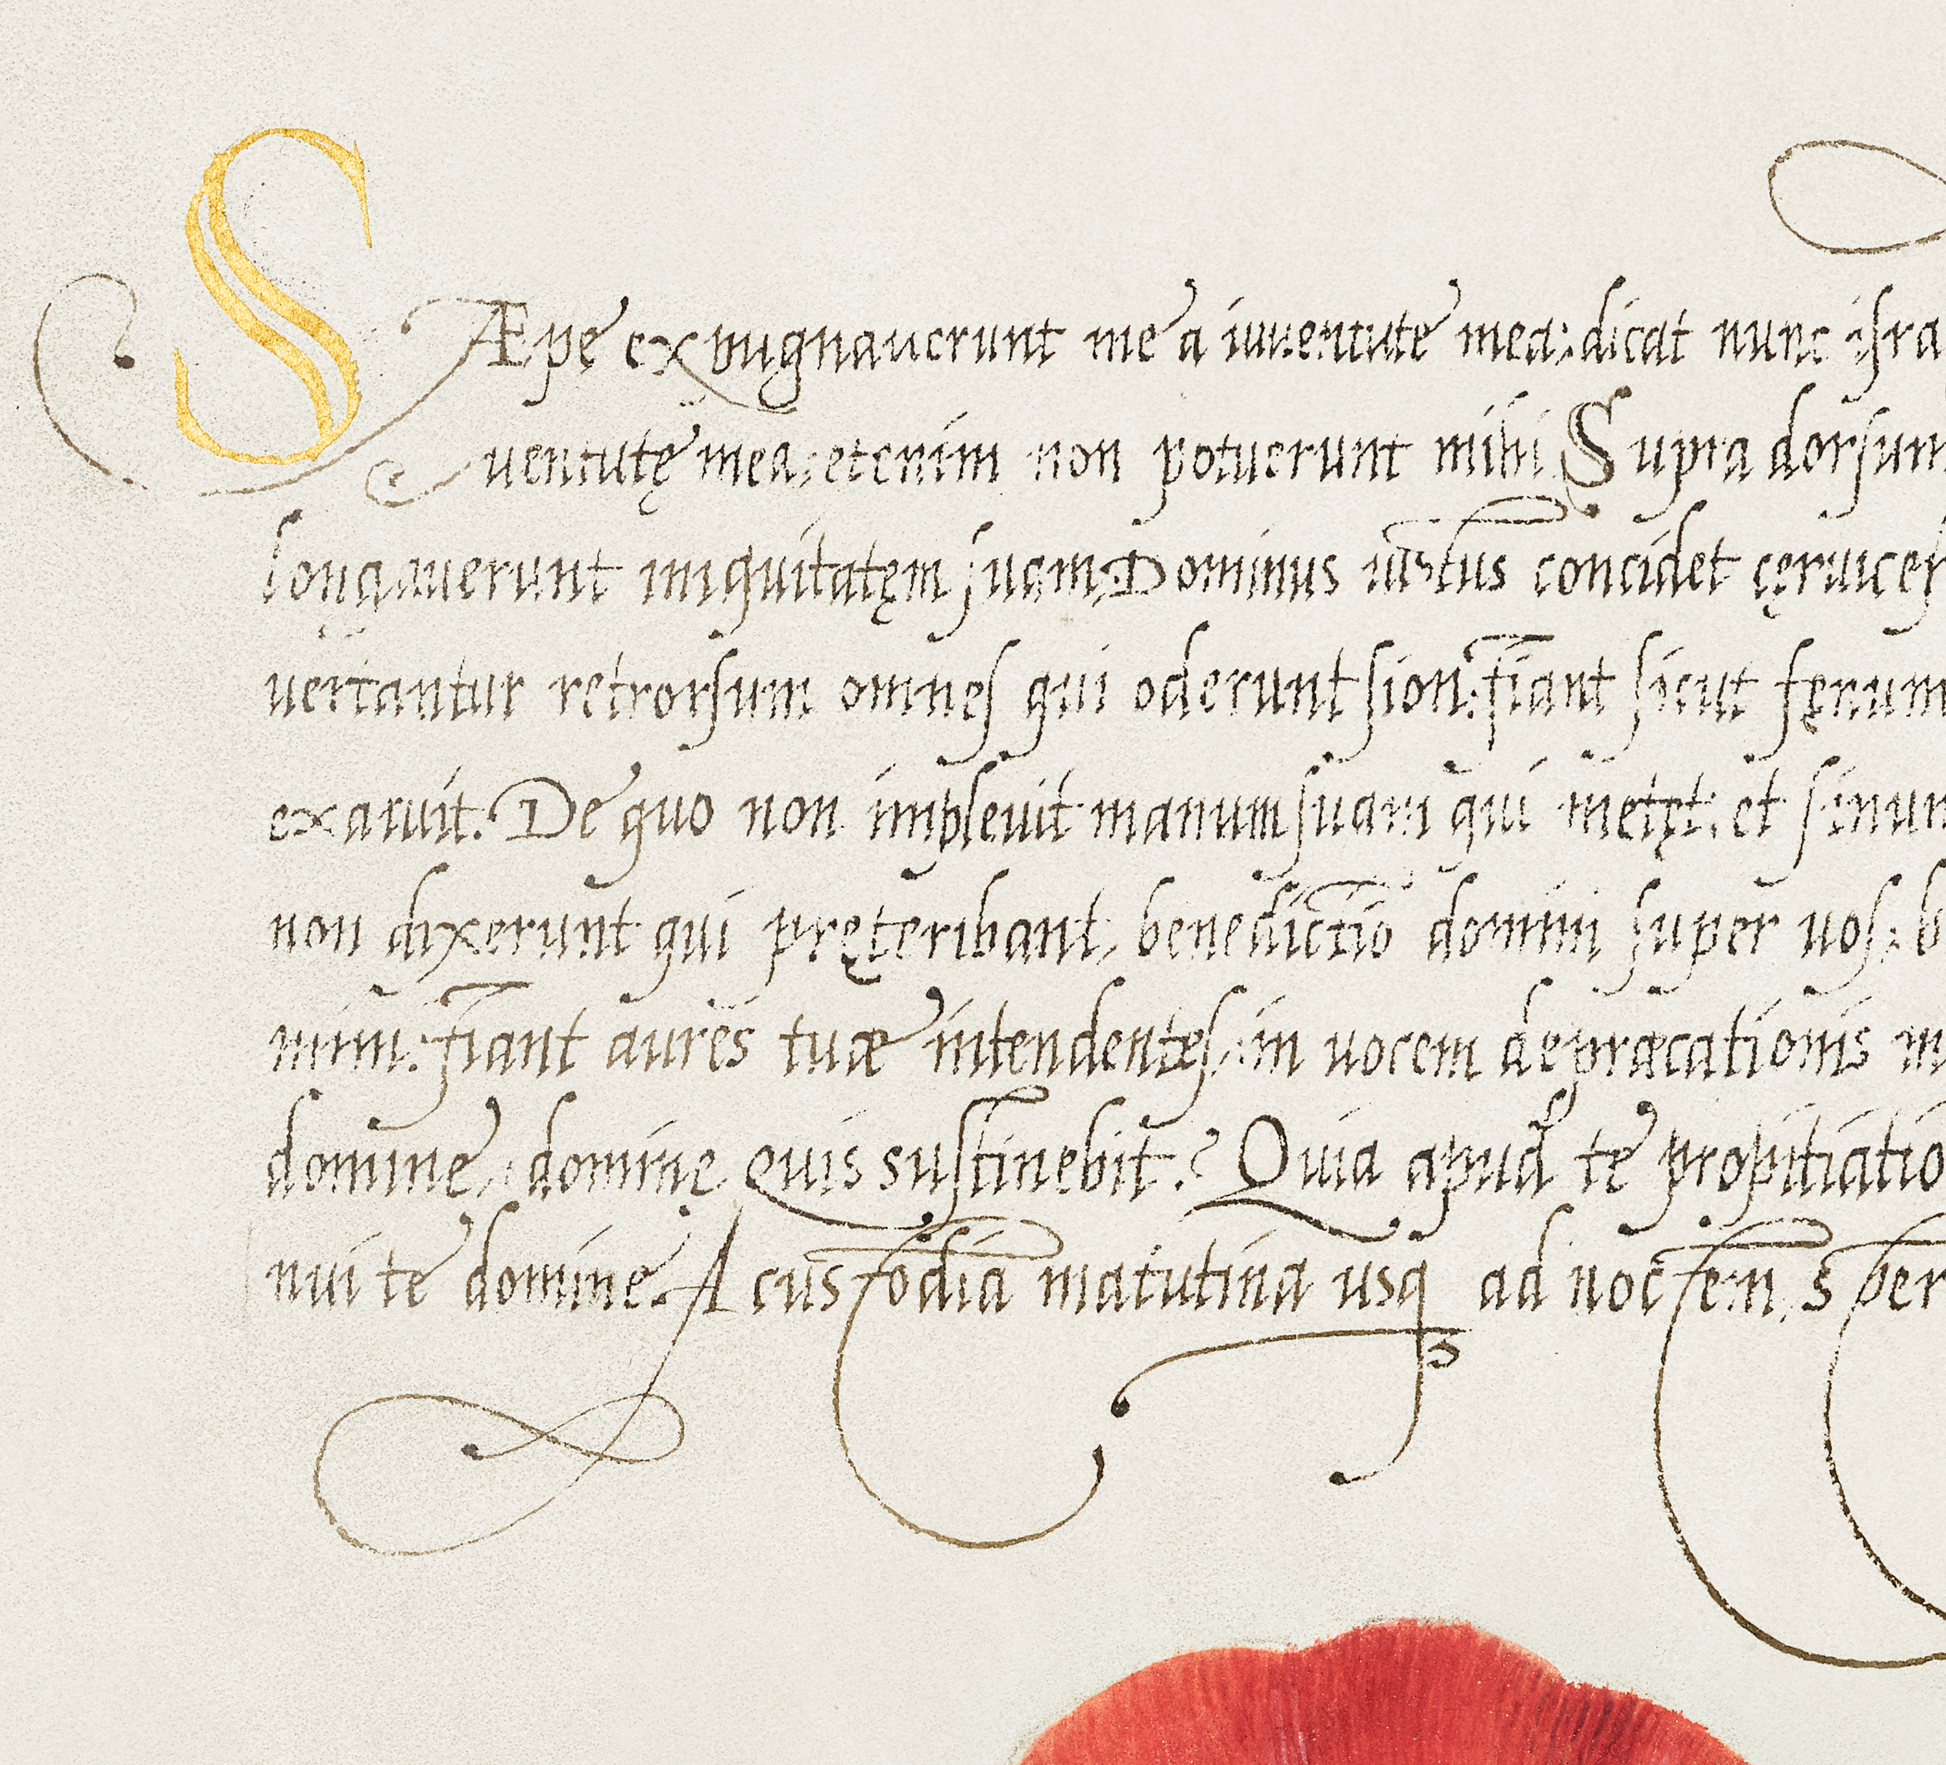 SÆpe expugnauerunt me a iuuentute mea: dicat nunc isra
uentutę mea: etenim non potuerunt mihi Supra dorsum
longauerunt iniquitatęm suam: Dominus iustus concidet cęruices
uertantur retrorsum omnes qui oderunt sion: fiant sicut fęnum
exaruit. De quo non impleuit manum suam qui metęt: et sinum
non dixerunt qui pręteribant, benedictio domini super uos: b
mini: fiant aures tuæ intendentes: in uocem depræcationis m
domine, domine quis sustinebit? Quia apud te propitiatio
nui te domine. A custodia matutina usq3 ad noctem, sper